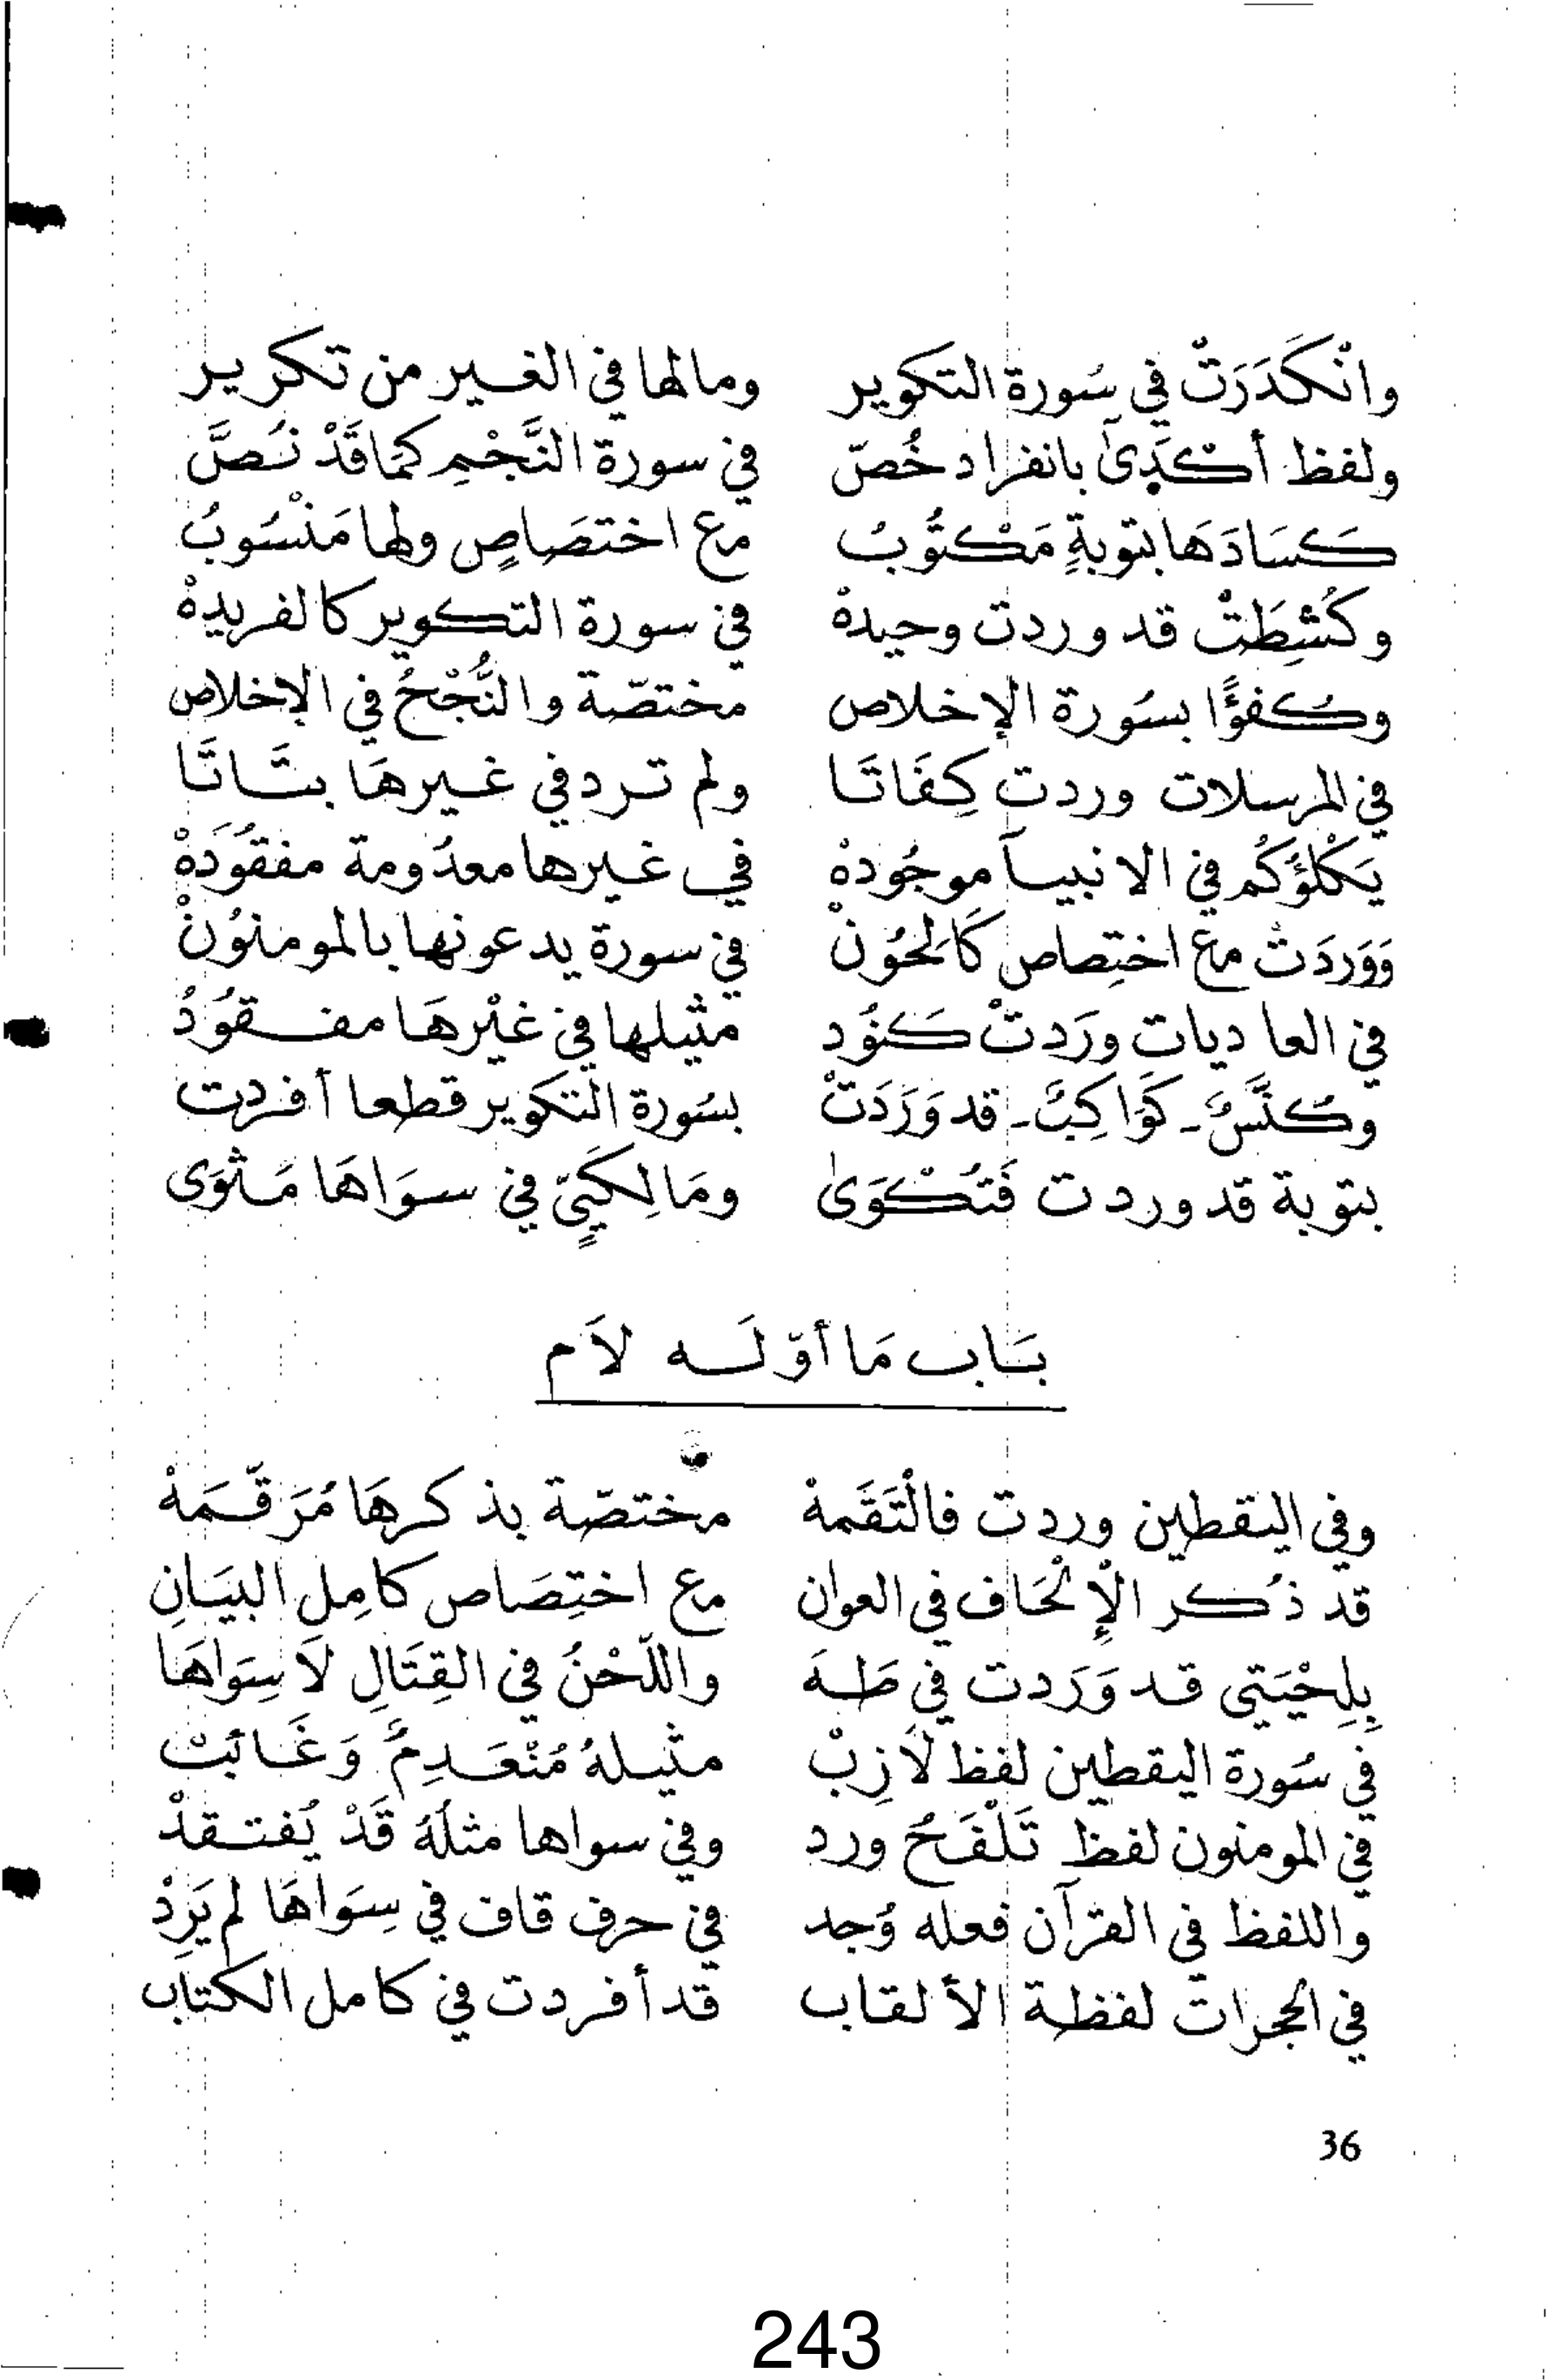 وانْكَدَرَتْ في سُورة التكوير ومالها في الغير من تكرير
ولفظ أكْدَىٰ بانفراد خُصّ في سورة النَّجْمِ كمَا قَدْ نُصَّ
كسَادَهَا بتوبةٍ مَكْتُوبُ مع اختصَاصٍ ولها مَنْسُوبُ
وكُشِطَتْ قد وردت وحيدهْ في سورة التكوير كالفريدهْ
وكُفؤًا بسُورة الإخلاص مختصّة والنُّجْحُ في الإخلاص
في المرسلات وردت كِفَاتَا ولم ترد في غيرهَا بتَاتَا
يَكْلَؤُكُم في الانبيآ موجُودهْ في غيرها معدُومة مفقُودَهْ
وَوَرَدَتْ مع اختِصاص كَالحُونْ في سورة يدعونها بالمومنُونْ
في العاديات ورَدتْ كَنُود مثيلها في غيْرهَا مفقُودُ
وكُنَّسُ - كَوَاكِبٌ - قد وَرَدَتْ بسُورة التكوير قطعا أفردت
بتوبة قد وردت فَتُكْوَىٰ ومَا لِكَيٍّ في سوَاهَا مَثْوَى
بَاب مَا أوّلَه لاَم
وفي اليقطين وردت فالْتَقَمهْ مختصّة بذكرهَا مُرَقّمَهْ
قد ذُكر الإِلْحَاف في العوان مع اختِصَاص كامِل البيَانِ
بِلِحْيَتِي قد وَرَدت في طَهَ واللّحْنُ في القِتَالِ لاَ سِوَاهَا
في سُورة اليقطين لفظ لاَزِبْ مثيلهُ مُنْعَدِمٌ وَغَائبْ
في المومنون لفظ تَلْفَحُ ورد وفي سواها مثلُهُ قَدْ يُفتقدْ
واللفظ في القرآن فعله وُجد في حرف قاف في سِوَاهَا لم يَرِدْ
في الحُجرات لفظة الألقاب قد أفردت في كامل الكتاب
36
243